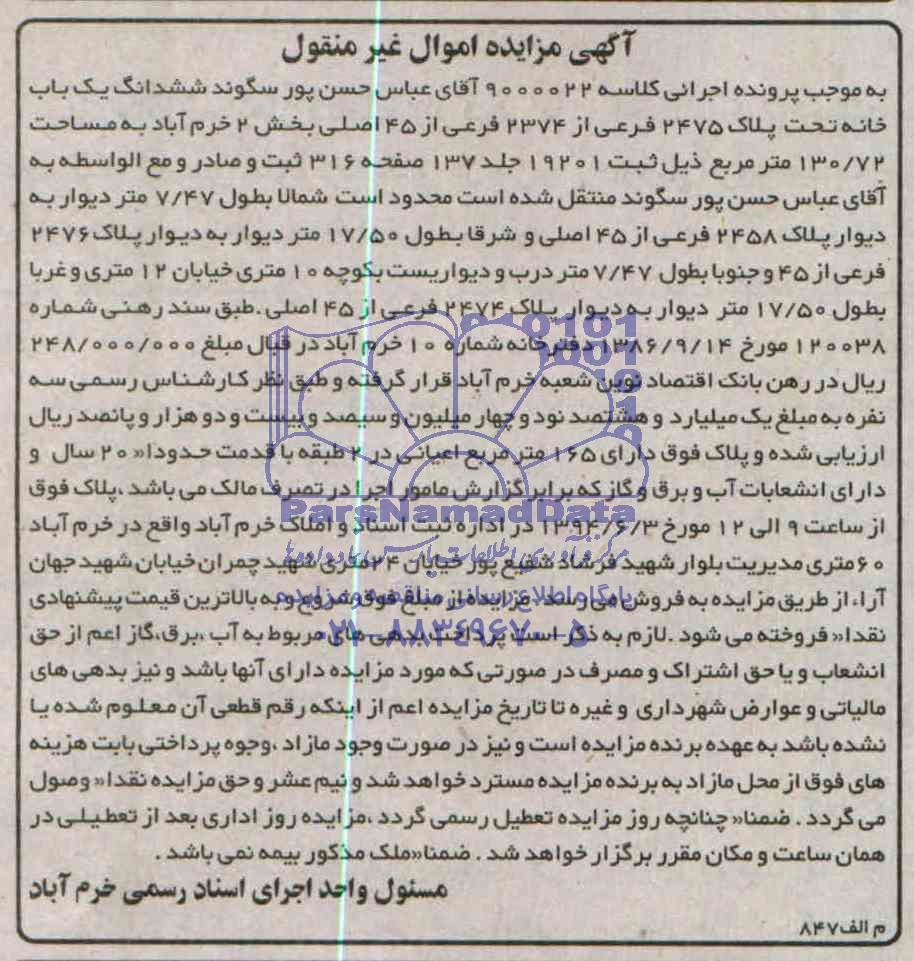 آگهی مزایده اموال غیر منقول
به موجب پرونده اجرائی کلاسه ۹۰۰۰۰۲۲ آقای عباس حسن پور سگوند ششدانگ یک باب
خانه تحت پلاک ۲۴۷۵ فرعی از ۲۳۷۴ فرعی از ۴۵ اصلی بخش ۲ خرم آباد به مساحت
۱۳۰/۷۲ متر مربع ذیل ثبت ۱۹۲۰۱ جلد ۱۳۷ صفحه ۳۱۶ ثبت و صادر و مع الواسطه به
آقای عباس حسن پور سگوند منتقل شده است محدود است شمالا بطول ۷/۴۷ متر دیوار به
دیوار پلاک ۲۴۵۸ فرعی از ۴۵ اصلی و شرقا بطول ۱۷/۵۰ متر دیوار به دیوار پلاک ۲۴۷۶
فرعی از ۴۵ و جنوبا بطول ۷/۴۷ متر درب و دیواریست بکوچه ۱۰ متری خیابان ۱۲ متری و غربا
بطول ۱۷/۵۰ متر دیوار به دیوار پلاک ۲۴۷۴ فرعی از ۴۵ اصلی .طبق سند رهنی شماره
۱۲۰۰۳۸ مورخ ۱۳۸۶/۹/۱۴ دفترخانه شماره ۱۰ خرم آباد در قبال مبلغ ۲۴۸/۰۰۰/۰۰۰
ریال در رهن بانک اقتصاد نوین شعبه خرم آباد قرار گرفته و طبق نظر کارشناس رسمی سه
نفره به مبلغ یک میلیارد و هشتصد نود و چهار میلیون و سیصد و بیست و دو هزار و پانصد ریال
ارزیابی شده و پلاک فوق دارای ۱۶۵ متر مربع اعیانی در ۲ طبقه با قدمت حدودا« ۲۰ سال و
دارای انشعابات آب و برق و گاز که برابر گزارش مامور اجرا در تصرف مالک می باشد ،پلاک فوق
از ساعت ۹ الی ۱۲ مورخ ۱۳۹۴/۶/۳ در اداره ثبت اسناد و املاک خرم آباد واقع در خرم آباد
۶۰متری مدیریت بلوار شهید فرشاد شفیع پور خیابان ۲۴متری شهید چمران خیابان شهید جهان
آراء از طریق مزایده به فروش می رسد. مزایده از مبلغ فوق شروع و به بالاترین قیمت پیشنهادی
نقدا« فروخته می شود .لازم به ذکر است پرداخت بدهی های مربوط به آب ،برق،گاز اعم از حق
انشعاب و یا حق اشتراک و مصرف در صورتی که مورد مزایده دارای آنها باشد و نیز بدهی های
مالیاتی و عوارض شهرداری و غیره تا تاریخ مزایده اعم از اینکه رقم قطعی آن معلوم شده یا
نشده باشد به عهده برنده مزایده است و نیز در صورت وجود مازاد ،وجوه پرداختی بابت هزینه
های فوق از محل مازاد به برنده مزایده مسترد خواهد شد و نیم عشر و حق مزایده نقدا« وصول
می گردد . ضمنا« چنانچه روز مزایده تعطیل رسمی گردد ،مزایده روز اداری بعد از تعطیلی در
همان ساعت و مکان مقرر برگزار خواهد شد . ضمنا«ملک مذکور بیمه نمی باشد .
مسئول واحد اجرای اسناد رسمی خرم آباد
م الف۸۴۷
ParsNamadData
پایگاه اطلاع رسانی مناقصه و مزایده
۰۲۱-۸۸۳۴۹۶۷۰-۵